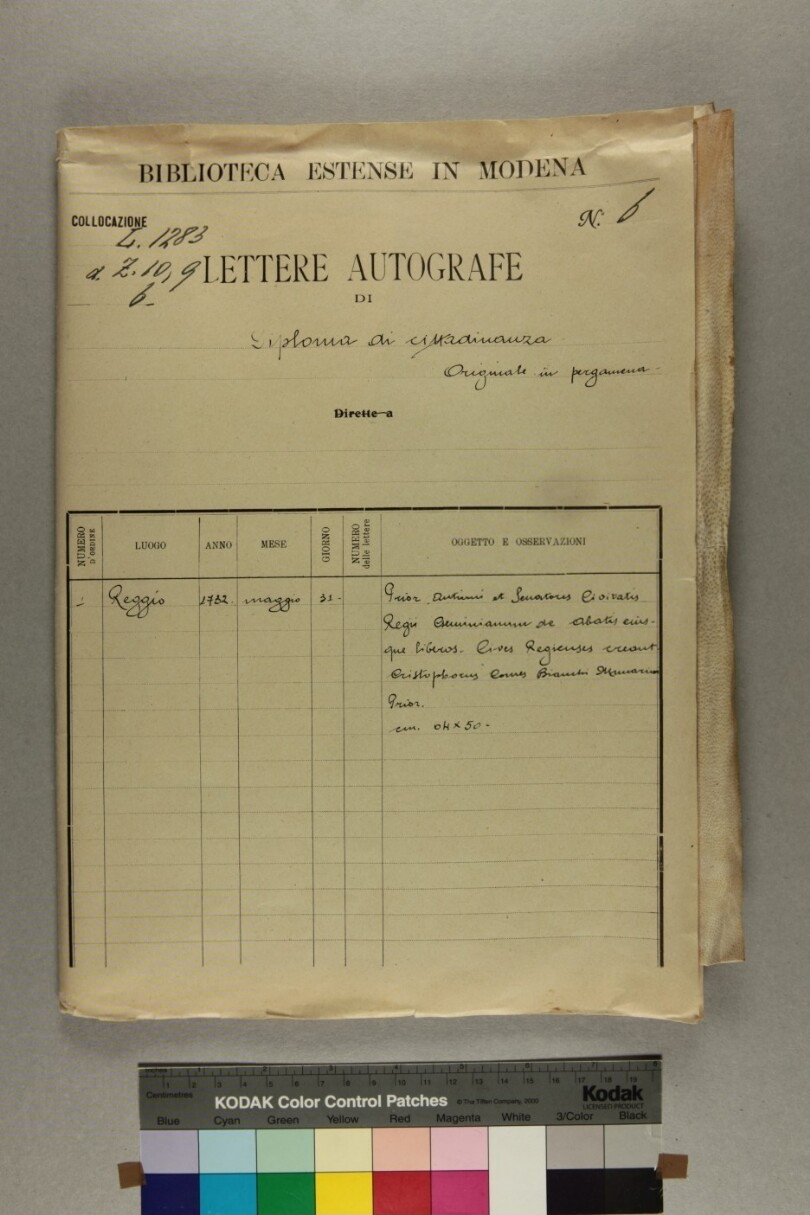 BIBLIOTECA ESTENSE IN MODENA
COLLOCAZIONE
L. 1283
α. Z. 10, 9
6-
N. 6
LETTERE AUTOGRAFE
DI
Diploma di cittadinanza
Originale in pergamena
Dirette a
NUMERO D'ORDINE
LUOGO
ANNO
MESE
GIORNO
NUMERO delle lettere
OGGETTO E OSSERVAZIONI
1 Reggio 1732. maggio 31-
Prior et Senatores Civitatis
Regii Geminianum de Abatis eius-
que liberos. Cives Regienses creant
Cristophorus Comes Bianchi
Prior.
cm. × 50-
Centimetres
1 2 3 4 5 6 7 8 9 10 11 12 13 14 15 16 17 18 19
KODAK Color Control Patches © The Tiffen Company, 2000
Kodak
LICENSED PRODUCT
Blue Cyan Green Yellow Red Magenta White 3/Color Black